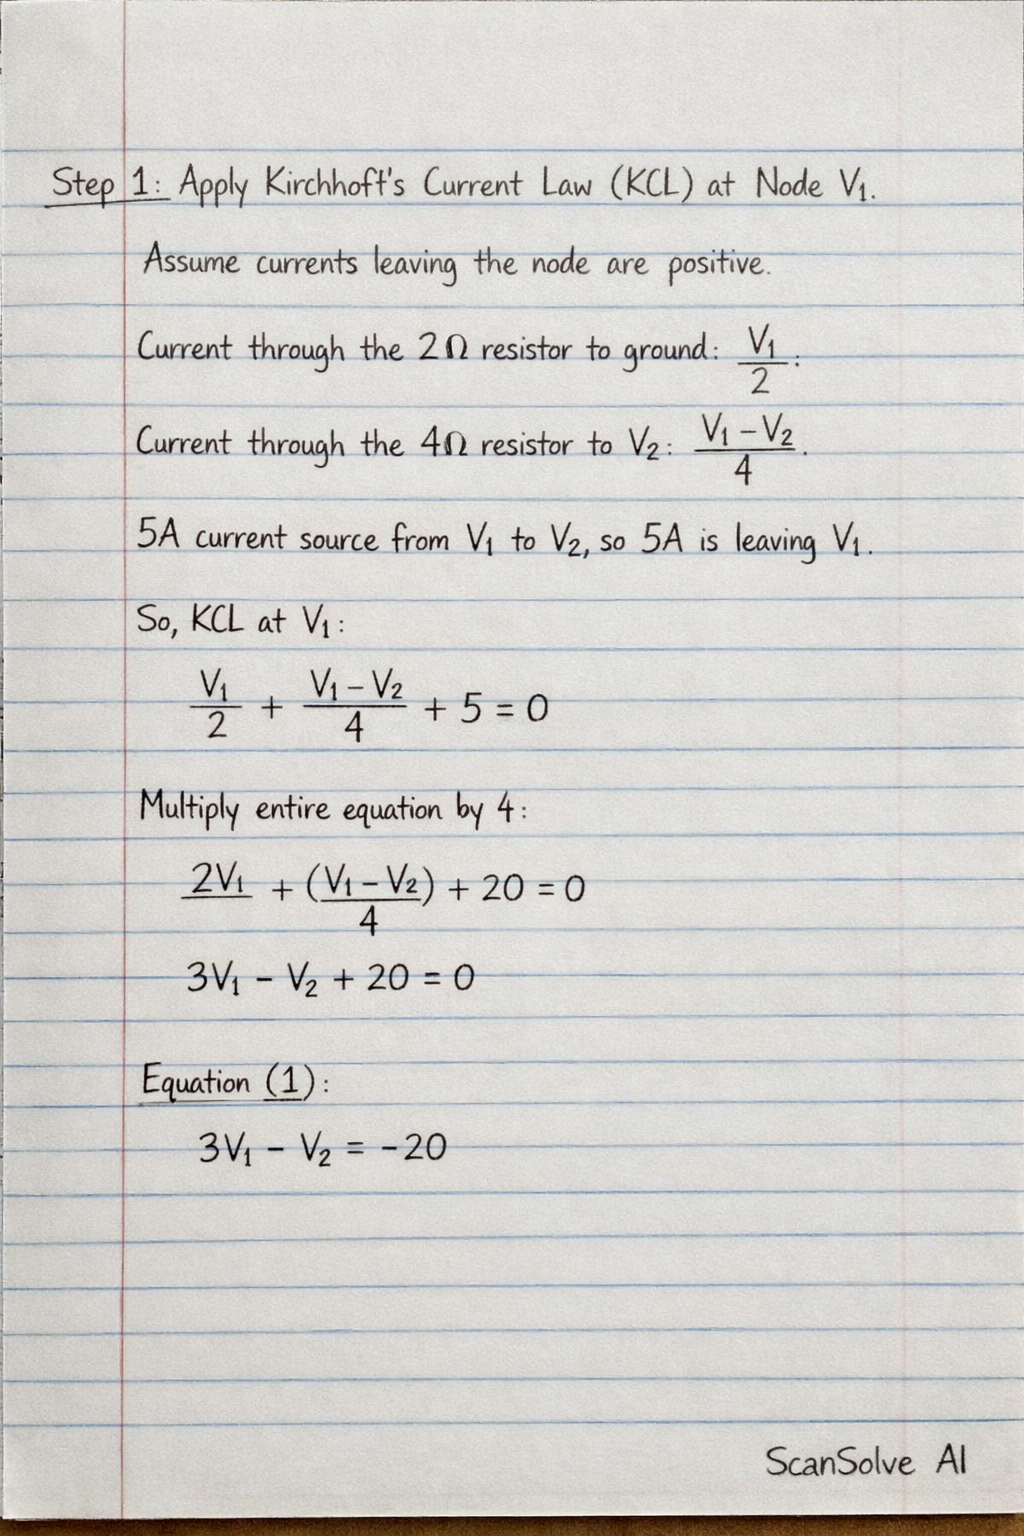 Step 1: Apply Kirchhoft's Current Law (KCL) at Node V₁.
Assume currents leaving the node are positive.
Current through the 2Ω resistor to ground: V₁/2.
Current through the 4Ω resistor to V₂: (V₁ – V₂)/4.
5A current source from V₁ to V₂, so 5A is leaving V₁.
So, KCL at V₁:
V₁/2 + (V₁ – V₂)/4 + 5 = 0
Multiply entire equation by 4:
2V₁ + (V₁ – V₂)/4 + 20 = 0
3V₁ – V₂ + 20 = 0
Equation (1):
3V₁ – V₂ = -20
ScanSolve AI